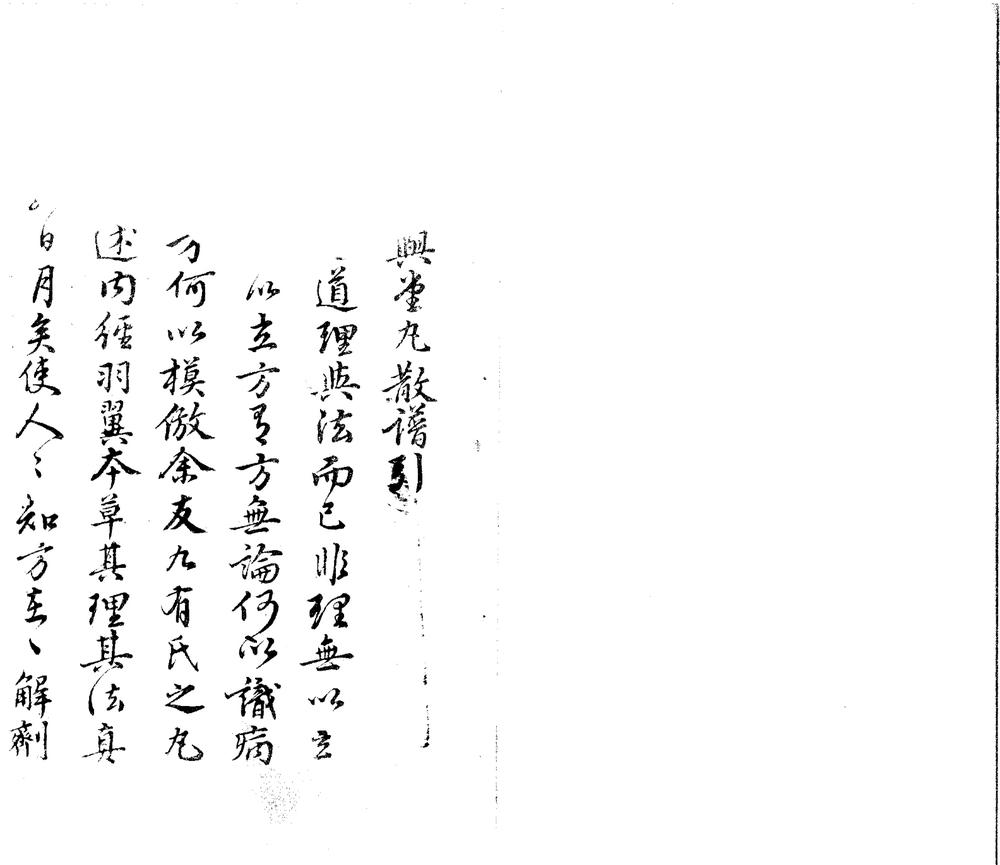 興堂丸散譜引
道理與法而已非理無以立
以立方有方無論何以識病
方何以模倣余友九有氏之丸
述內經羽翼本草其理其法真
日月矣使人〻知方在〻解劑